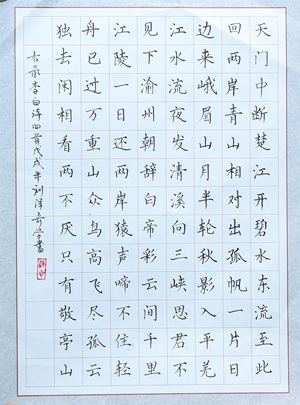 天门中断楚江开碧水东流至此
回两岸青山相对出孤帆一片日
边来峨眉山月半轮秋影入平羌
江水流夜发清溪向三峡思君不
见下渝州朝辞白帝彩云间千里
江陵一日还两岸猿声啼不住轻
舟已过万重山众鸟高飞尽孤云
独去闲相看两不厌只有敬亭山
录李白诗四首戊戌年刘